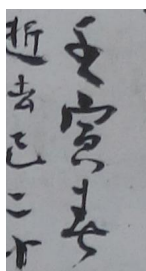 壬寅春
逝去已二十